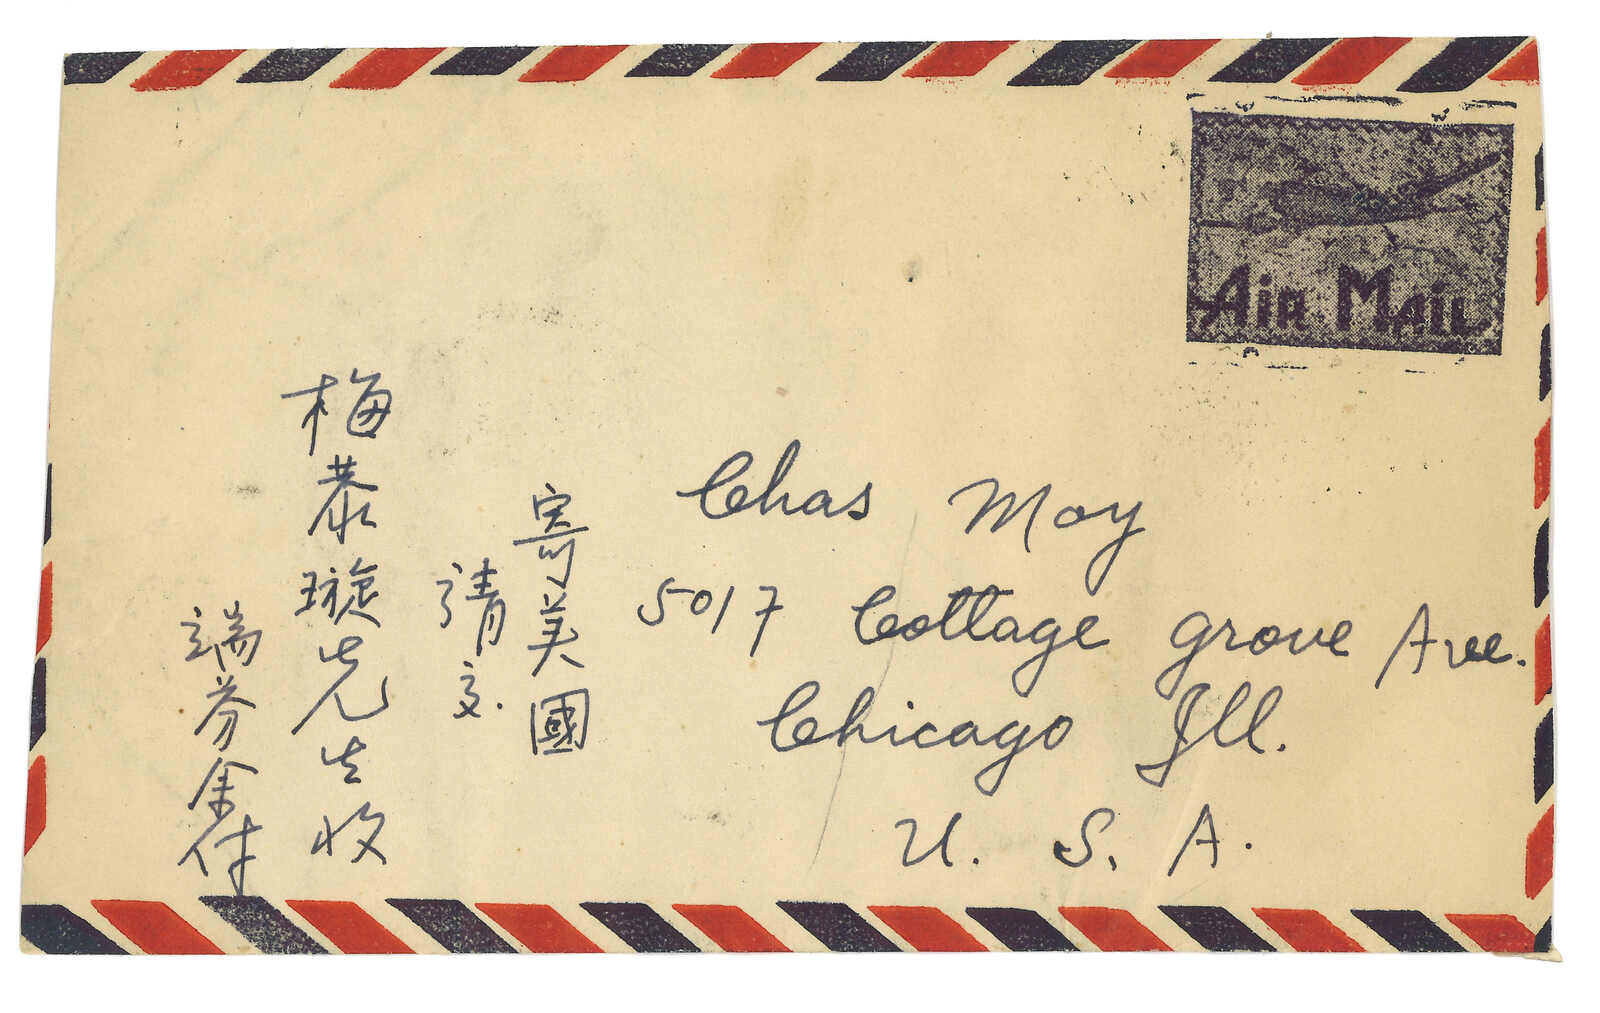 AIR MAIL
Chas Moy
5017 Cottage Grove Ave.
Chicago Ill.
U. S. A.
寄美國
請交
梅恭璇先生收
端芬余付